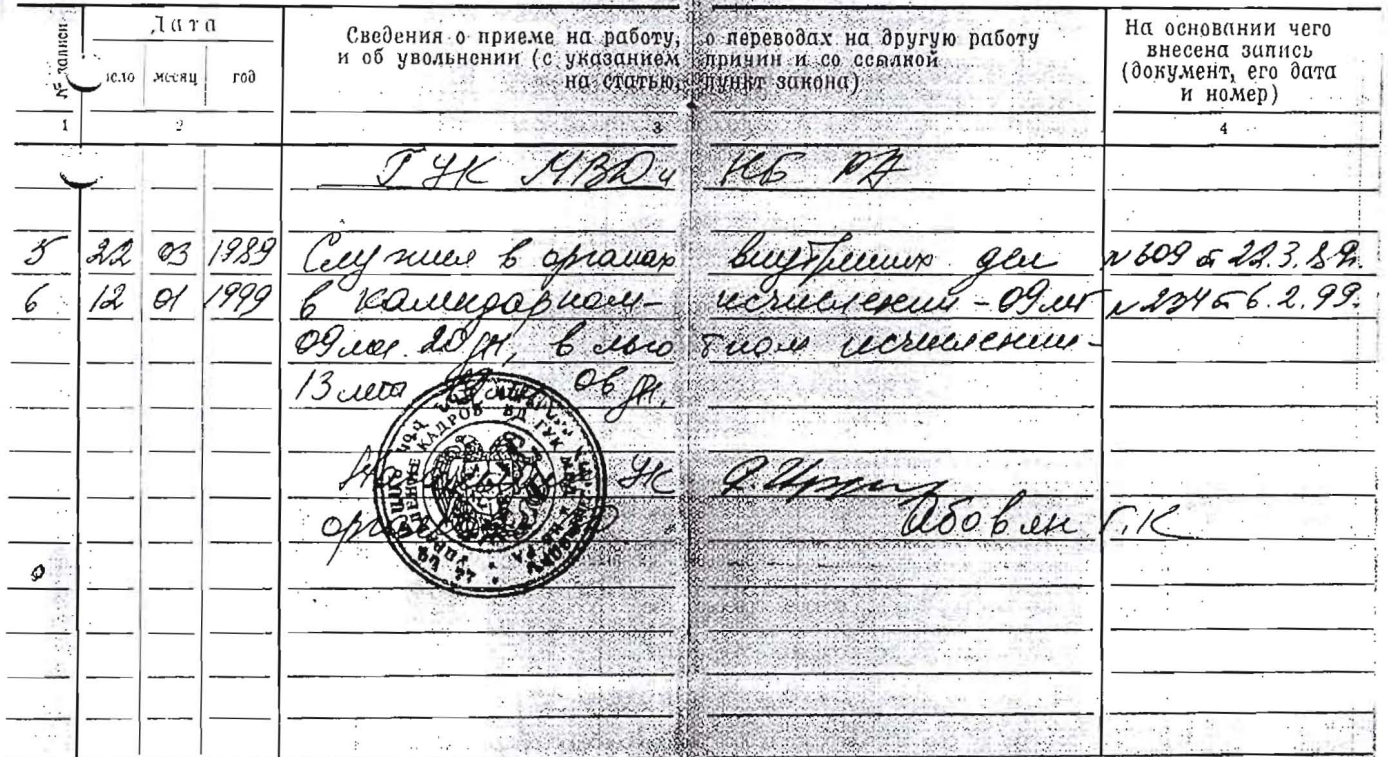 № записи
Дата
число месяц год
Сведения о приеме на работу, о переводах на другую работу
и об увольнении (с указанием причин и со ссылкой
на статью, пункт закона)
На основании чего
внесена запись
(документ, его дата
и номер)
1 2 3 4
ГУК МВД и НБ РА
5 22 03 1989 Служил в органах внутренних дел N 609 от 22.3.89г.
6 12 01 1999 в календарном исчислении - 09 лет N 234 от 6.2.99.
09 мес. 20 дн, в льготном исчислении -
13 лет 06 дн.
УК
Абовян Г.К
КАДРОВ ВД ГУК МВД